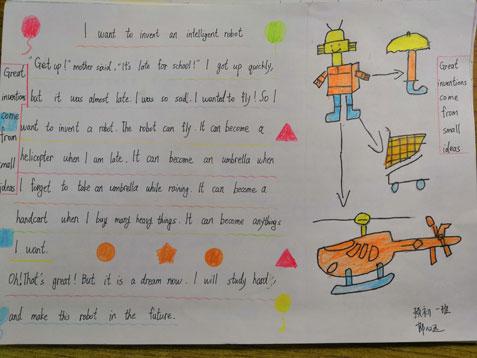 I want to invent an intelligent robot
"Get up!" mother said, "It's late for school!" I got up quickly,
but it was almost late. I was so sad. I wanted to fly! So I
want to invent a robot. The robot can fly. It can become a
helicopter when I am late. It can become an umbrella when
I forget to take an umbrella while raining. It can become a
handcart when I buy many heavy things. It can become anythings
I want.
Oh! That's great! But it is a dream now. I will study hard,
and make this robot in the future.
Great
inventions
come
from
small
ideas
Great
inventions
come
from
small
ideas
一班